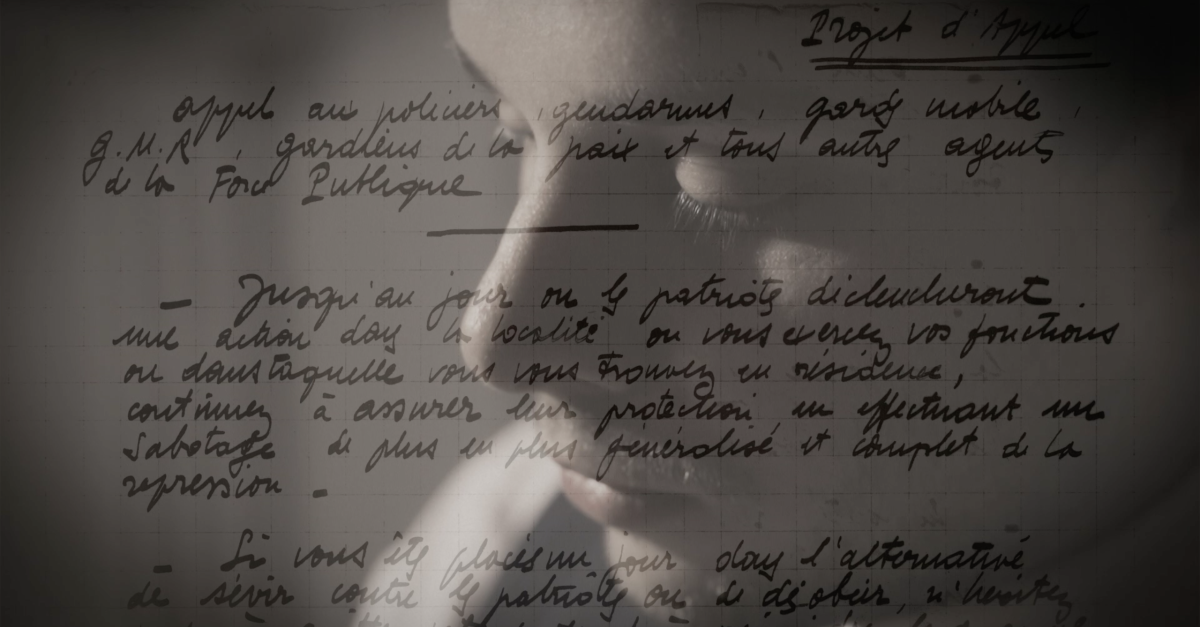 Projet d'Appel
Appel au policiers, gendarmes, gards mobile,
G.M.R, gardiens de la paix et tous autres agents
de la Force Publique
— Jusqu'au jour ou les patriotes déclencheront
une action dans la localité ou vous exercez vos fonctions
ou dans laquelle vous vous trouvez en résidence,
continuez à assurer leur protection en effectuant un
Sabotage de plus en plus généralisé et complet de la
repression -
— Si vous êtes placés un jour dans l'alternative
de sévir contre les patriotes ou de désobéir, n'hésitez